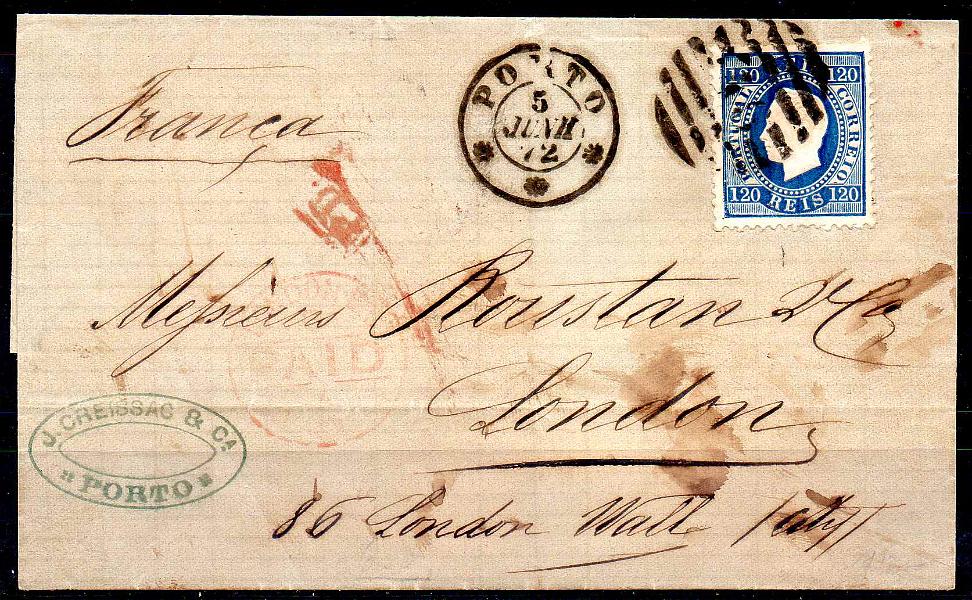 Franca
PORTO
5
JUNH
72
120 120
PORTUGAL CORREIO
120 REIS 120
Messieurs Roustan & Co
PAID
London
J. CREISSAC & CA
PORTO
86 London Wall /City/